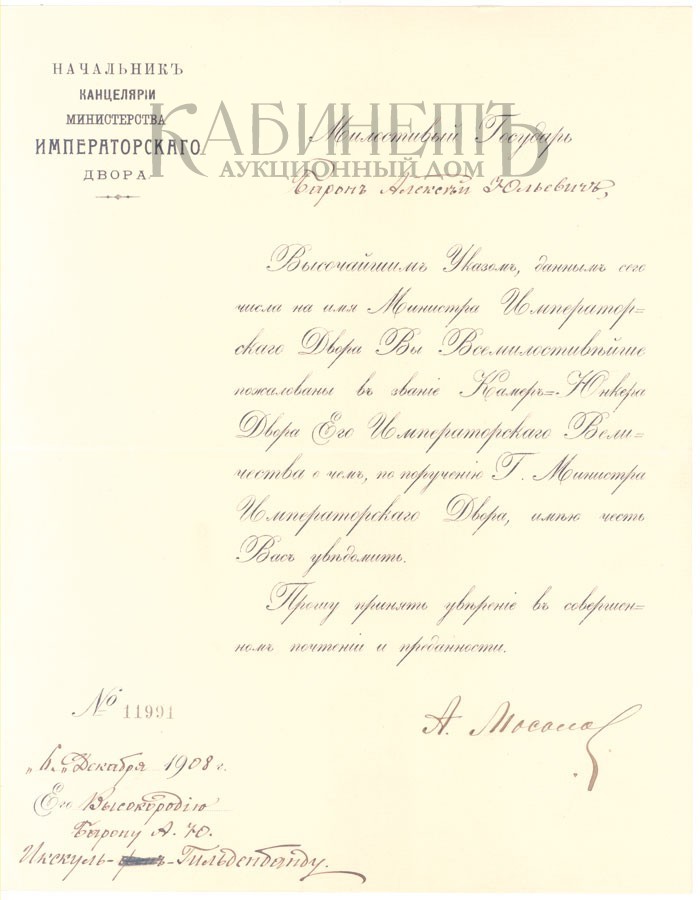 НАЧАЛЬНИКЪ
КАНЦЕЛЯРІИ
МИНИСТЕРСТВА
ИМПЕРАТОРСКАГО
ДВОРА
КАБИНЕТЪ
АУКЦИОННЫЙ ДОМ
Милостивый Государь
Баронъ Алексѣй Юльевичъ,
Высочайшимъ Указомъ, даннымъ сего
числа на имя Министра Император=
скаго Двора Вы Всемилостивѣйше
пожалованы въ званіе Камеръ=Юнкера
Двора Его Императорскаго Вели=
чества о чемъ, по порученію Г. Министра
Императорскаго Двора, имѣю честь
Васъ увѣдомить.
Прошу принять увѣреніе въ совершен=
номъ почтеніи и преданности.
№ 11991
А. Мосолов
„6„ Декабря 1908 г.
Его Высокородію
Барону А. Ю.
Икскуль-Гильденбанду.